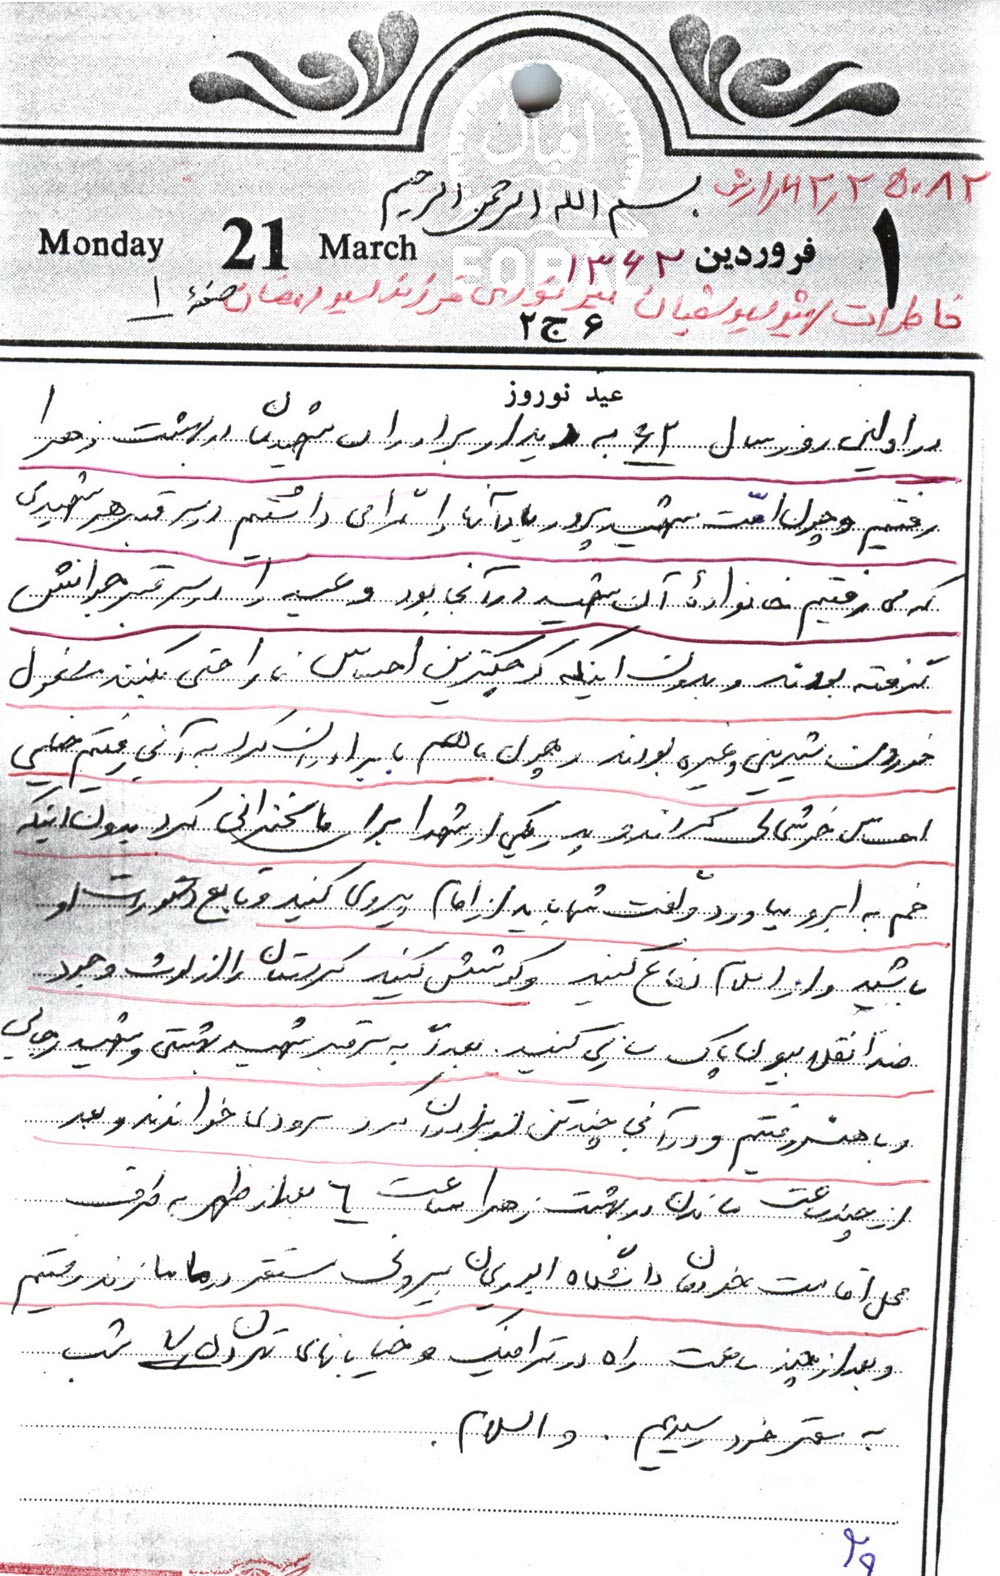 بسم الله الرحمن الرحیم
Monday 21 March
فروردین ۱۳۶۲
۱
خاطرات شهید سید سفیان میر نوری فرزند سید رمضان صفحهٔ ۱
۶ ج ۲
عید نوروز
در اولین روز سال ۶۲ به دیدار برادران شهیدمان در بهشت زهرا
رفتیم و چون امّت شهید پرور یاد آنها را گرامی داشتیم در سر قبر هر شهیدی
که می رفتیم خانوادهٔ آن شهید در آنجا بود و عید را در سر قبر جوانش
گرفته بودند و بدون اینکه کوچکترین احساس ناراحتی بکنند مشغول
خوردن شیرینی و غیره بودند و چون ما هم با برادران کرد به آنجا رفتیم خیلی
احساس خوشحالی کردند و پدر یکی از شهدا برای ما سخنرانی کرد بدون اینکه
خم به ابرو بیاورد و گفت شما باید از امام پیروی کنید و تابع دستورات او
باشید و از اسلام دفاع کنید و کوشش کنید کردستان را از لوث وجود
ضد انقلابیون پاک سازی کنید. بعداً به سر قبر شهید بهشتی و شهید رجایی
و باهنر رفتیم و در آنجا چند تن از برادران کرد سرودی خواندند و بعد
از چند ساعت ماندن در بهشت زهرا ساعت ۶ بعد از ظهر به طرف
محل اقامت خودمان دانشگاه ابوریحان بیرونی مستقر در ماما زند رفتیم
و بعد از چند ساعت راه در ترافیک و خیابانهای تهران شب
به مقر خود رسیدیم. والسلام.